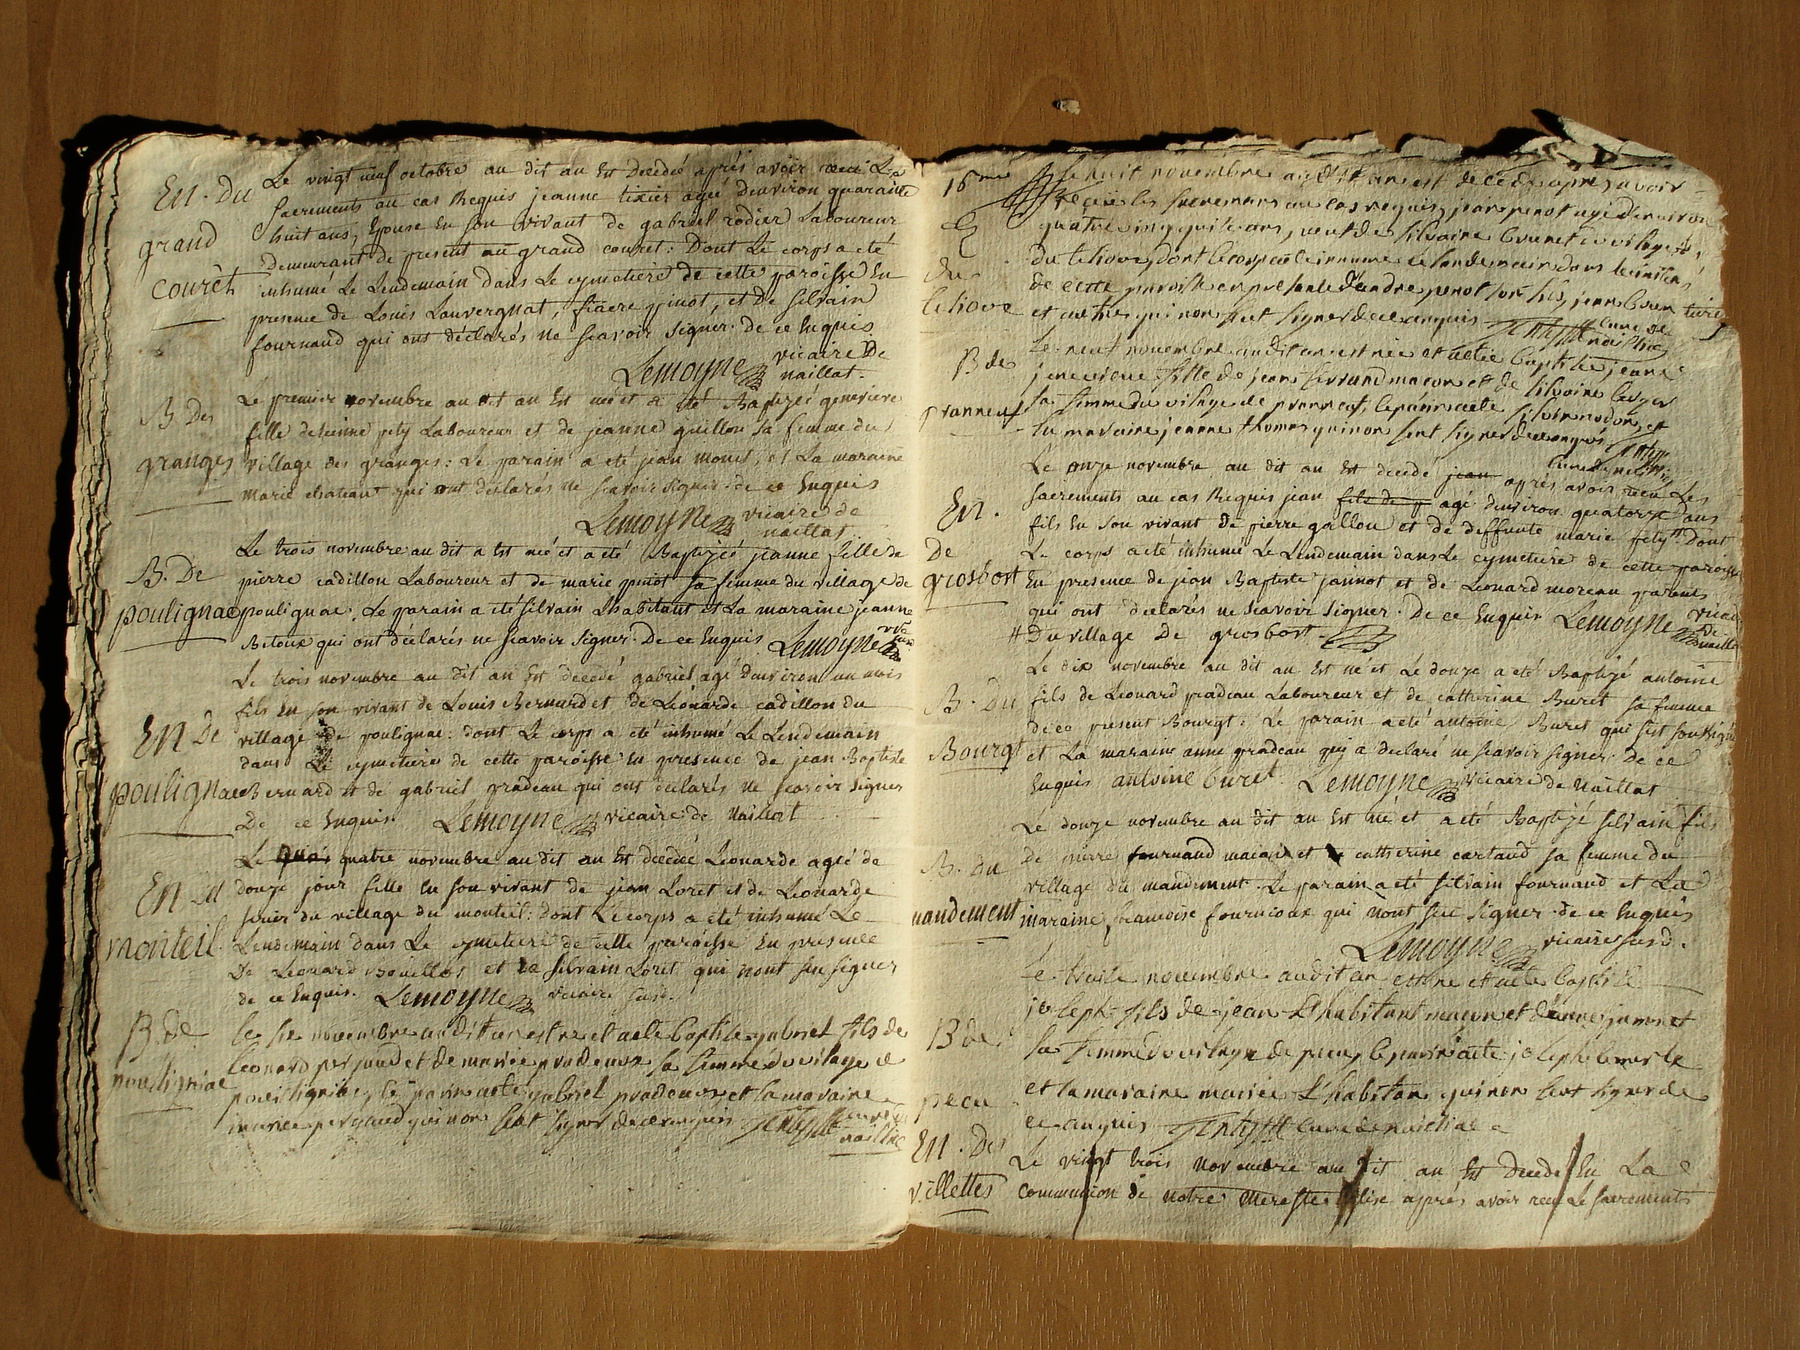 En. Du
grand
Courêt
Le vingt neuf octobre au dit an Est Decedée après avoir recu Les
sacrements au cas Requis jeanne tixier agée denviron quarante
huit ans, Epouse En son vivant de gabriel rodier Laboureur
demeurant de present au grand couret: Dont Le corps a été
inhumé Le Lendemain dans Le cymetiere de cette paroisse En
presence de Louis Lauvergnat, fiacre pinot, et de silvain
fournaud qui ont déclarés ne scavoir signer. de ce Enquis
Lemoyne vicaire De
naillat.
B Des
granges
Le premier novembre au dit an Est née et a été Baptizée genevieve
fille detienne pety Laboureur et de jeanne guillon sa femme du
village des granges: Le parain a été jean monet, et La maraine
marie chatiant qui ont déclarés ne scavoir signer. de ce Enquis
Lemoyne vicaire de
naillat
B. De
poulignac
Le trois novembre au dit a Est née et a été Baptizée jeanne fille de
pierre cadillon Laboureur et de marie pinot sa femme du village de
poulignac. Le parain a été silvain Lhabitant et La maraine jeanne
Betoux qui ont déclarés ne scavoir signer. De ce Enquis Lemoyne
En De
poulignac
Le trois novembre au dit an Est decedé gabriel agé denviron un mois
fils En son vivant de Louis Bernard et de Léonarde cadillon du
village de poulignac: dont Le corps a été inhumé Le Lendemain
dans Le cymetiere de cette paroisse En presence de jean Baptiste
Bernard et de gabriel pradeau qui ont declarés ne scavoir signer
De ce Enquis. Lemoyne vicaire de Naillat
En du
monteil
Le quatre novembre au dit an Est decedée Leonarde agée de
douze jour fille En son vivant de jean Loret et de Leonarde
du village du monteil: dont Le corps a été inhumé Le
Lendemain dans Le cymetiere de cette paroisse En presence
De Leonard Bouillot et de silvain Loret qui nont sceu signer
de ce Enquis. Lemoyne vicaire susd.
B de
le novembre audit an est né et a ete baptise gabriel fils de
leonard perjaud et de mariee pradeaux sa femme du vilage de
le parin a ete gabriel pradeaux et la maraine
mariee perjaud qui non seut signer de ce enquis
du
lehove
novembre audit an est decedé apres avoir
recue les sacremans au cas requis, jeane penot agé denviron
quatre ans, veuve de silvaine brunet
le landemain dans
de cette paroisse en presance dandre penot son fils, jean brun
et autres qui non seut signer de ce enquis
B de
pranneuf
Le neuf novembre audit an est née et a ete baptisee jeane
fille de jean maçon et de silvaine leger
sa femme du vilage de pranneuf, le parin a ete
la maraine jeanne thomas qui non seut signer de ce enquis
En.
De
grosbost
Le onze novembre au dit an Est decedé jean après avoir recu Les
sacrements au cas Requis jean agé denviron quatorze ans
fils En son vivant de pierre gallou et de deffunte marie fety # Dont
Le corps a été inhumé Le Lendemain dans Le cymetiere de cette paroisse
En presence de jean Baptiste jannot et de Leonard moreau parents
qui ont déclarés ne scavoir signer. De ce Enquis Lemoyne
# Du village De grosbost.
B. Du
Bourgt
Le dix novembre au dit an Est né et Le douze a été Baptizé antoine
fils de Léonard pradeau Laboureur et de catherine Buret sa femme
De ce present Bourgt: Le parain a été antoine Buret qui sest soussigné
et La maraine anne pradeau qui a declaré ne scavoir signer. de ce
Enquis antoine buret Lemoyne vicaire de Naillat
B. Du
mandement
Le douze novembre au dit an Est né et a été Baptizé silvain fils
De pierre fournaud macon et de catherine cartaud sa femme du
village du mandement. Le parain a été silvain fournaud et La
maraine francoise fournioux qui nont sceu signer. de ce Enquis
Lemoyne vicaire susd.
B de
pecu
le treize novembre audit an est né et a ete baptise
joseph fils de jean Lhabitant maçon et de anne jamot
sa femme du vilage de pecu, le parin a ete joseph
et la maraine mariee Lhabitan qui non seut signer de
ce enquis
En. Des
villettes
Le vingt trois Novembre au dit an Est Decedé En La
communion de notre mere ste Eglise après avoir recu Le sacrements